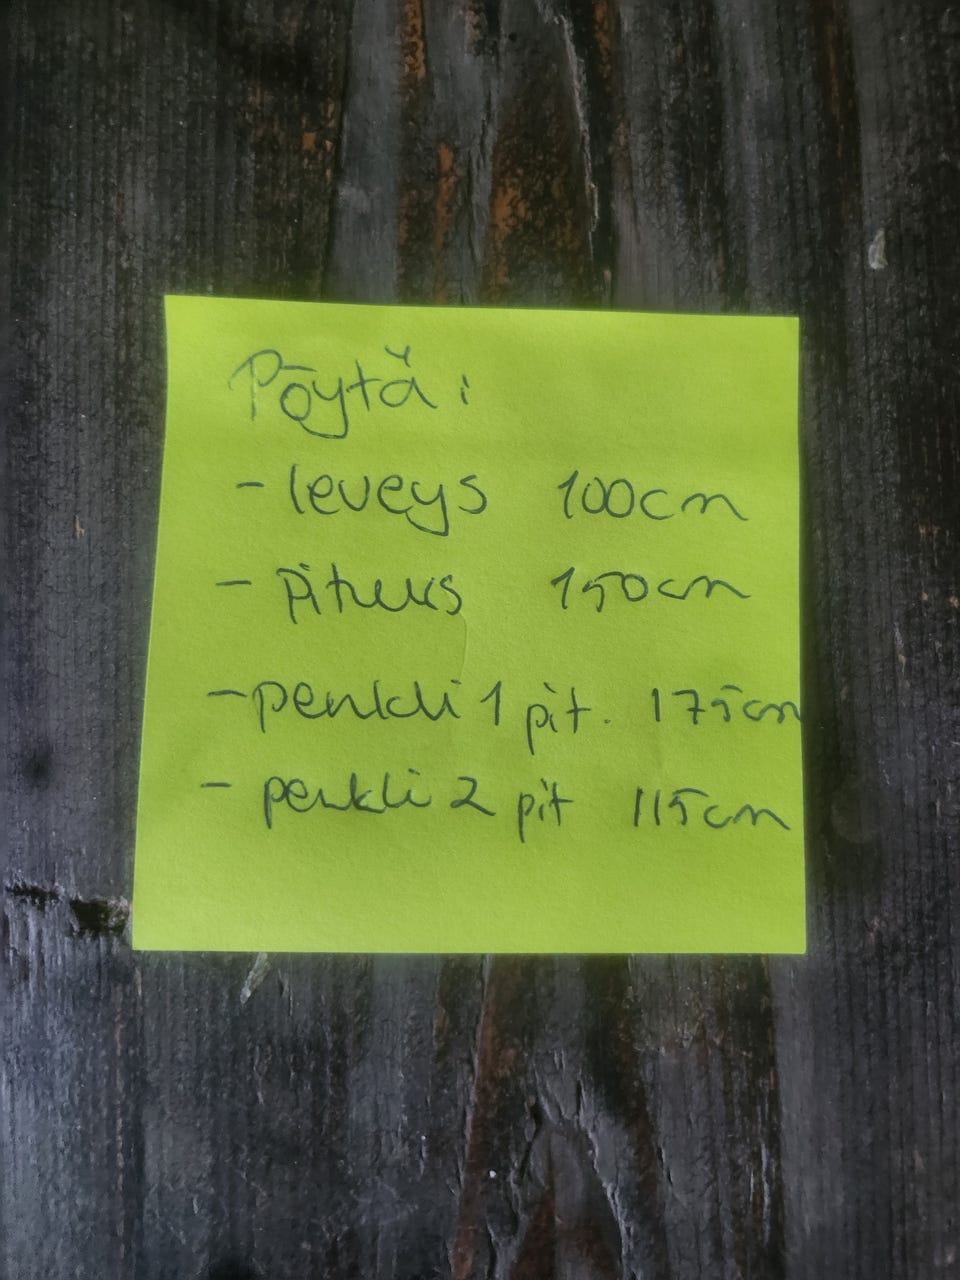 Pöytä:
- leveys 100cm
- pituus 150cm
- penkki 1 pit. 175cm
- penkki 2 pit 115cm